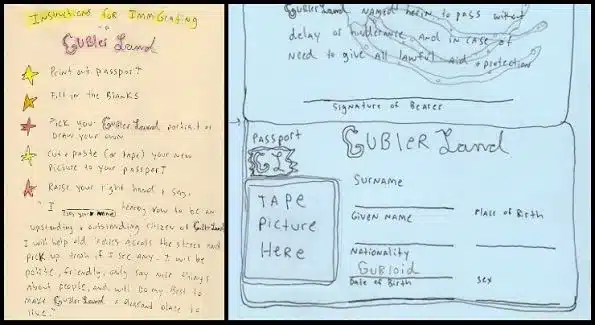 Instructions for Immigrating
to
Gubler Land
Print out passport
Fill in the Blanks
Pick your Gubler Land portrait or
draw your own
Cut & paste (or tape) your new
Picture to your passport
Raise your right hand & say,
"I
hereby vow to be an
upstanding & outstanding citizen of Gubler Land
I will help old ladies across the street and
pick up trash if I see any. I will be
polite, friendly, only say nice things
about people, and will do my best to
make Gubler Land a pleasant place to
live."
Gubler Land named herin to pass without
delay or hinderance. And in case of
need to give all lawful aid & protection
Signature of Bearer
Passport
GL
Gubler Land
TAPE
Picture
Here
Surname
Given Name
Place of Birth
Nationality
Gubloid
Date of Birth
Sex